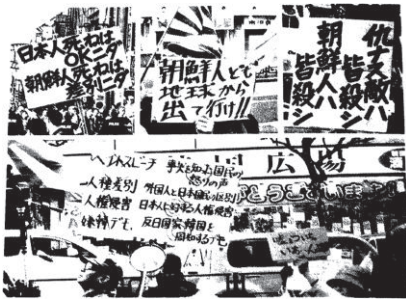 日本人死ねは
OKニダ
朝鮮人死ねは
差別ニダ
朝鮮人ども
地球から
出て行け!!
仇ナス敵ハ
皆殺シ
朝鮮人ハ
皆殺シ
ヘイトスピーチ 事実を知った国民の
怒りの声
人種差別 外国人と日本国民の区別
人権侵害 日本人に対する人権侵害
嫌韓デモ、反日国家韓国を
周知するデモ
広場
とうございま